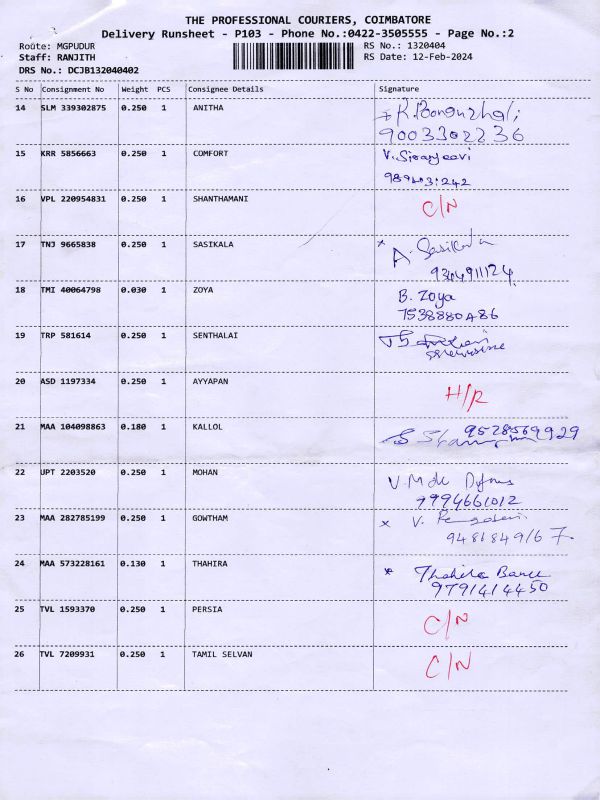 THE PROFESSIONAL COURIERS, COIMBATORE
Delivery Runsheet - P103 - Phone No.:0422-3505555 - Page No.:2
Route: MGPUDUR RS No.: 1320404
Staff: RANJITH RS Date: 12-Feb-2024
DRS No.: DCJB132040402
S No Consignment No Weight PCS Consignee Details Signature
14 SLM 339302875 0.250 1 ANITHA
9003302236
15 KRR 5856663 0.250 1 COMFORT
16 VPL 220954831 0.250 1 SHANTHAMANI C/N
17 TNJ 9665838 0.250 1 SASIKALA A. Sasikala
18 TMI 40064798 0.030 1 ZOYA B. Zoya
19 TRP 581614 0.250 1 SENTHALAI
20 ASD 1197334 0.250 1 AYYAPAN H/R
21 MAA 104098863 0.180 1 KALLOL
22 UPT 2203520 0.250 1 MOHAN
9994661012
23 MAA 282785199 0.250 1 GOWTHAM
24 MAA 573228161 0.130 1 THAHIRA Thahira
9791414450
25 TVL 1593370 0.250 1 PERSIA C/N
26 TVL 7209931 0.250 1 TAMIL SELVAN C/N